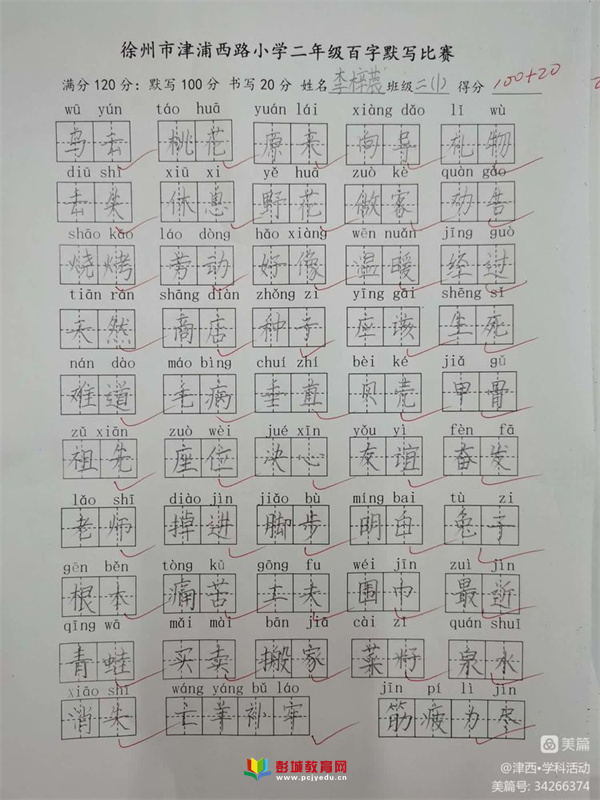 徐州市津浦西路小学二年级百字默写比赛
满分120分：默写100分 书写20分 姓名 李梓晨 班级 二(1) 得分 100+20
wū yún táo huā yuán lái xiàng dǎo lǐ wù
乌云 桃花 原来 向导 礼物
diū shī xiū xi yě huā zuò kè quàn gào
丢失 休息 野花 做客 劝告
shāo kǎo láo dòng hǎo xiàng wēn nuǎn jīng guò
烧烤 劳动 好像 温暖 经过
tiān rán shāng diàn zhǒng zi yīng gāi shēng sǐ
天然 商店 种子 应该 生死
nán dào máo bìng chuí zhí bèi ké jiǎ gǔ
难道 毛病 垂直 贝壳 甲骨
zǔ xiān zuò wèi jué xīn yǒu yì fèn fā
祖先 座位 决心 友谊 奋发
lǎo shī diào jìn jiǎo bù míng bai tù zi
老师 掉进 脚步 明白 兔子
gēn běn tòng kǔ gōng fu wéi jīn zuì jìn
根本 痛苦 工夫 围巾 最近
qīng wā mǎi mài bān jiā cài zǐ quán shuǐ
青蛙 买卖 搬家 菜籽 泉水
xiāo shī wáng yáng bǔ láo jīn pí lì jìn
消失 亡羊补牢 筋疲力尽
彭城教育网
www.pcjyedu.cn
美篇
@津西•学科活动
美篇号: 34266374